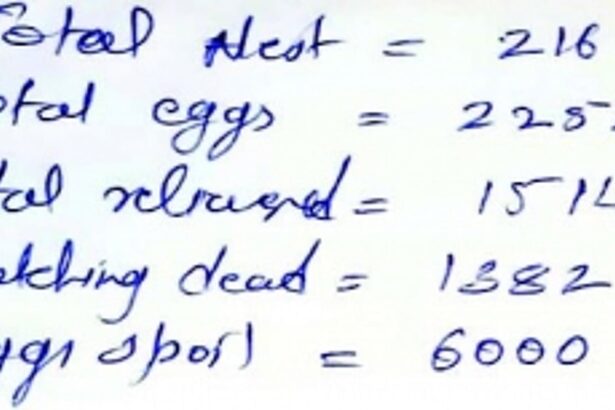 Total Nest = 216
otal eggs = 225
tal released = 151
tching dead = 1382
ggs spoil = 6000